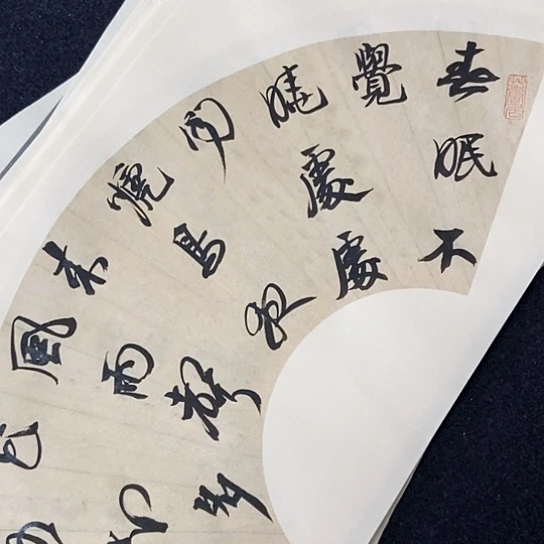 春眠不
覺
曉處處
聞
啼鳥夜
來
風雨聲
花
知多